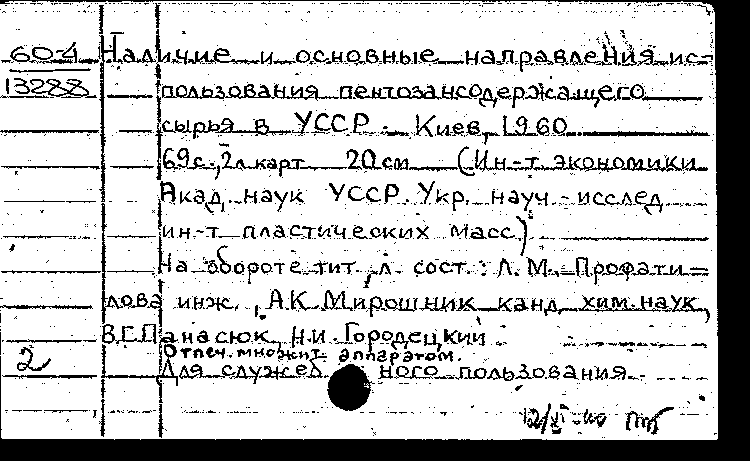 60-4 Наличие и основные направления ис-
13288 пользования пентозансодержащего
сырья в УССР. Киев, 1960
69с., 2л.карт 20см (Ин-т экономики
Акад. наук УССР. Укр. науч.-исслед
ин-т пластических масс)
На обороте тит. л. сост.: Л.М. Профати-
лова инж., А.К. Мирошник канд. хим. наук,
В.Г. Панасюк, Н.И. Городецкий
Отпеч. множит. аппаратом.
2 Для служебного пользования